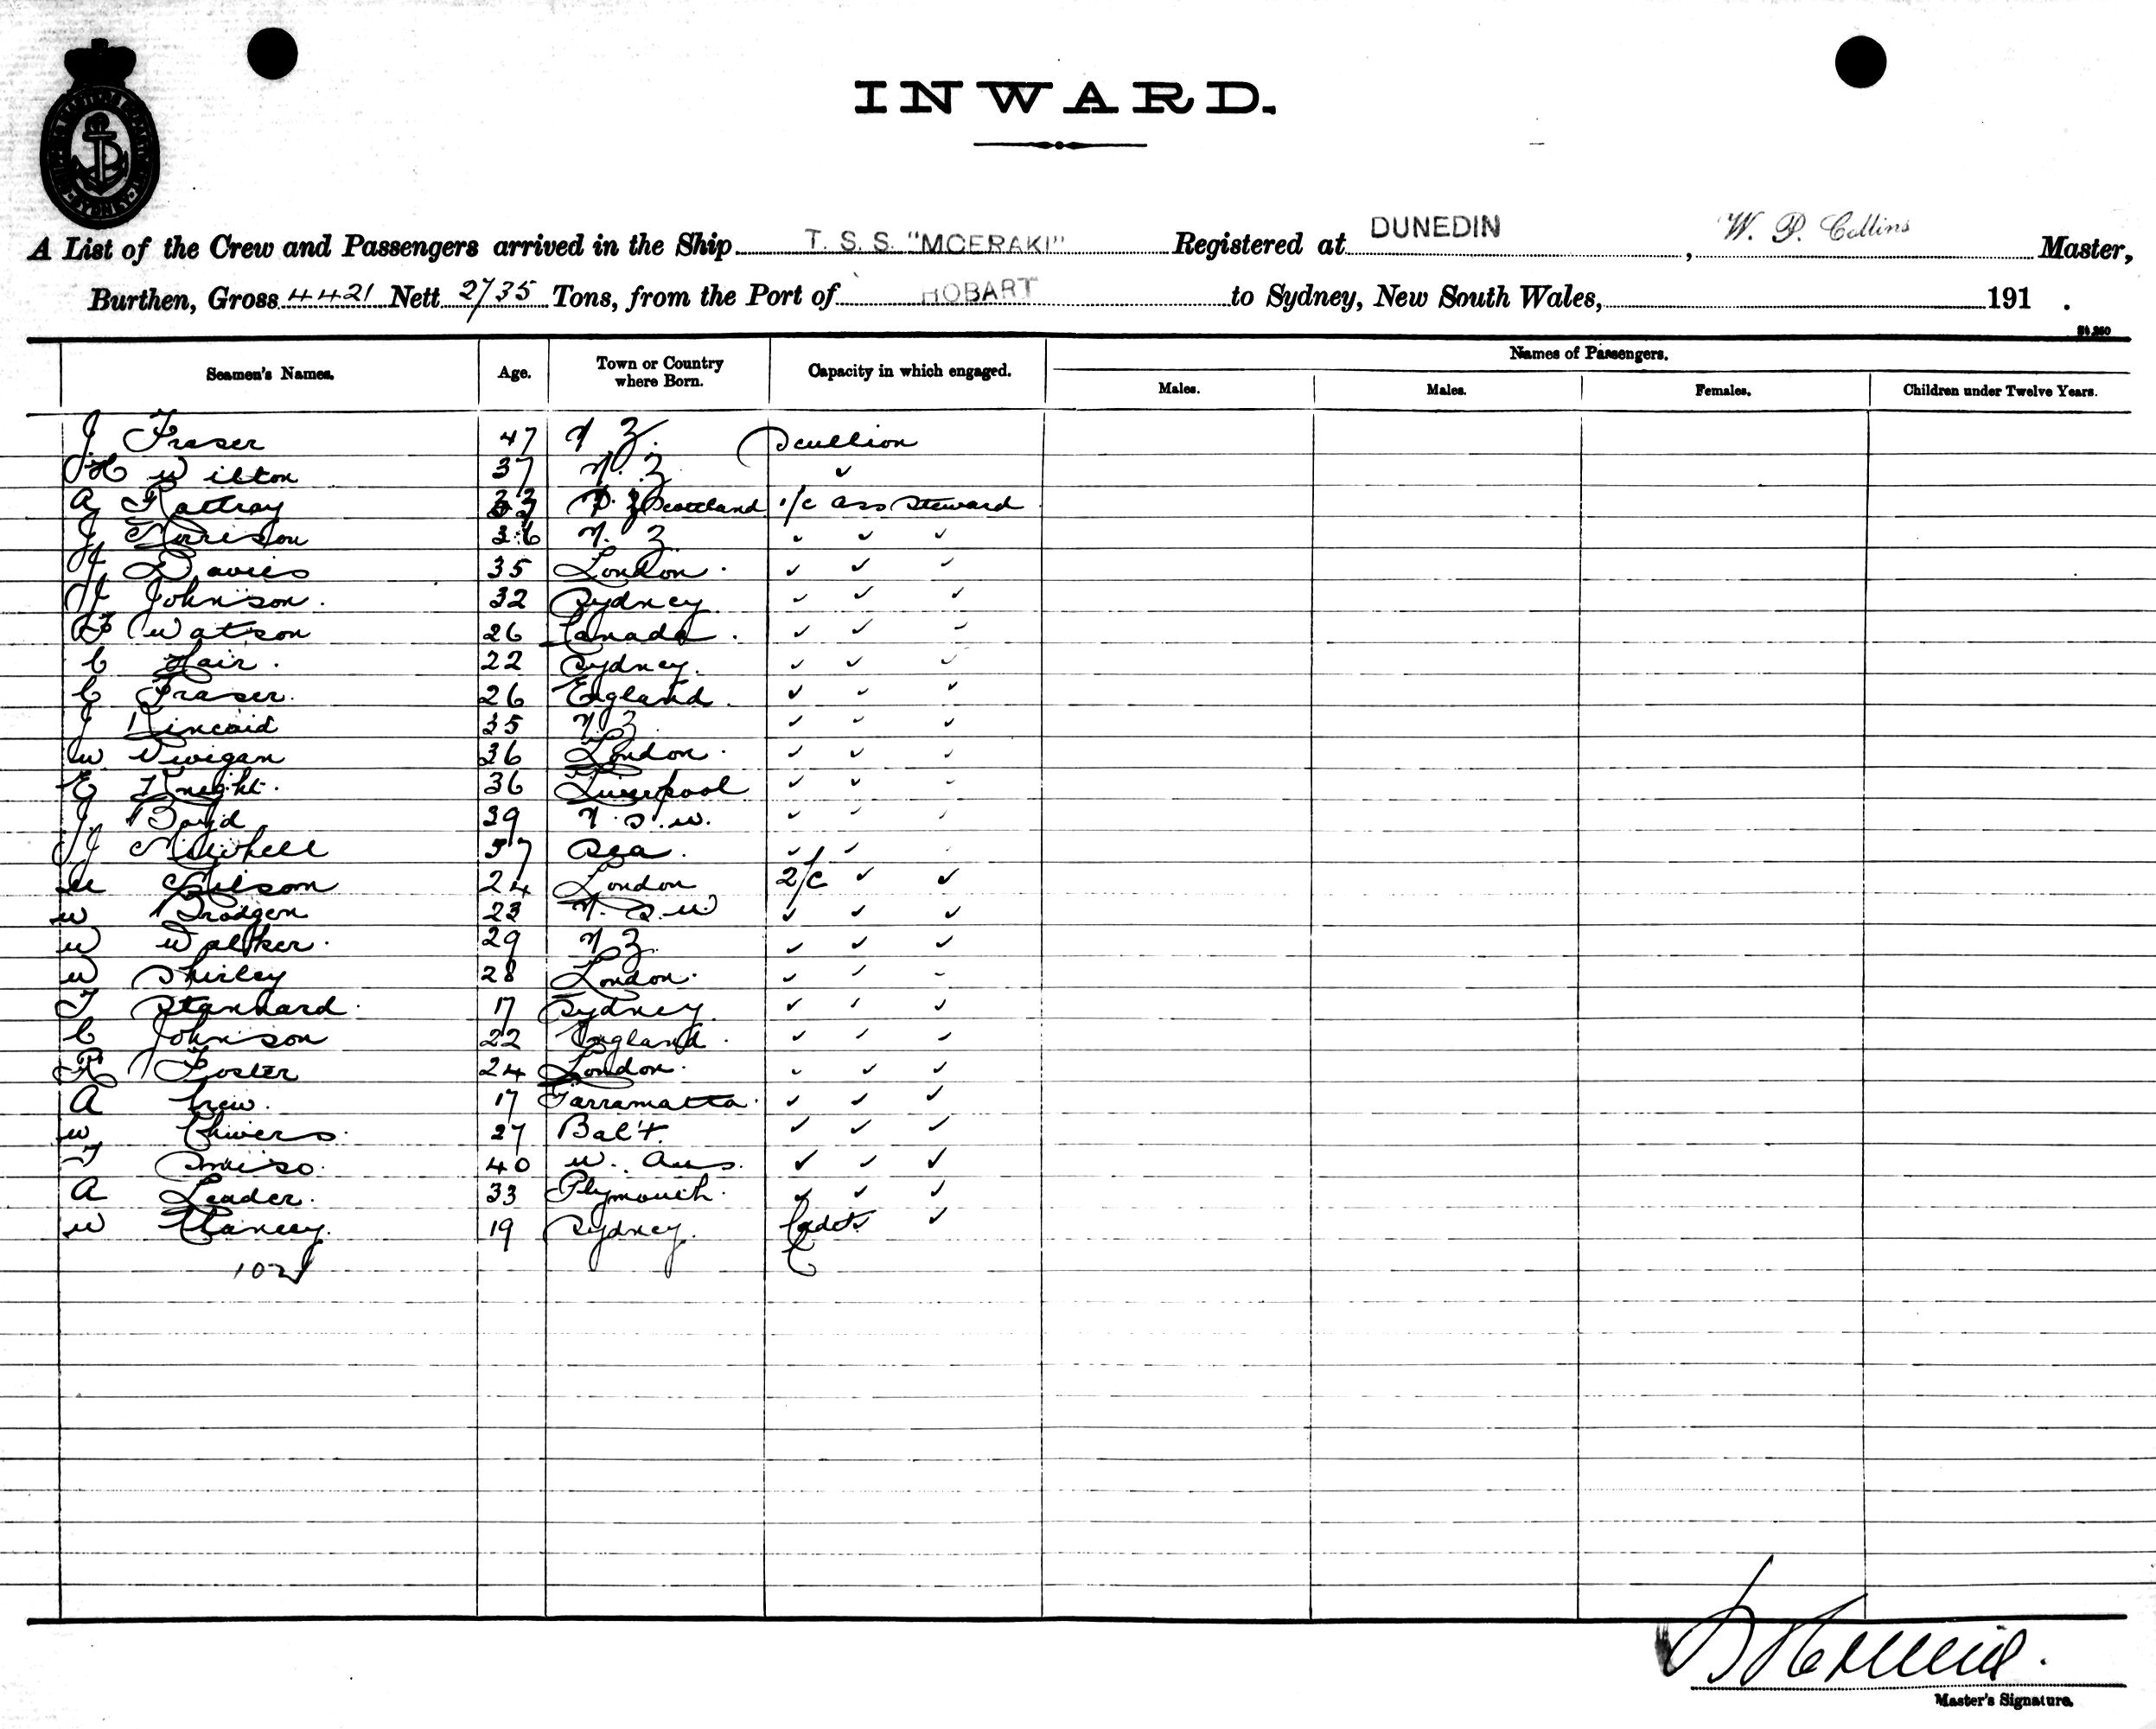 INWARD.
SYDNEY
A List of the Crew and Passengers arrived in the Ship T. S. S. "MOERAKI" Registered at DUNEDIN, W. P. Collins Master,
Burthen, Gross 4421 Nett 2735 Tons, from the Port of HOBART to Sydney, New South Wales, 191 .
Names of Passengers.
Seamen's Names. Age. Town or Country where Born. Capacity in which engaged. Males. Males. Females. Children under Twelve Years.
J Fraser 47 N Z. Scullion
H Wilton 37 N. Z ✓
A Rattray 33 N. Z Scotland 1/c ass Steward
J Morrison 36 N. Z ✓ ✓ ✓
H Davies 35 London. ✓ ✓ ✓
H Johnson. 32 Sydney ✓ ✓ ✓
Watson 26 Canada. ✓ ✓ ✓
C Hair. 22 Sydney. ✓ ✓ ✓
C Fraser. 26 England. ✓ ✓ ✓
J Kincaid 35 N Z ✓ ✓ ✓
W 36 London. ✓ ✓ ✓
E Knight. 36 Liverpool ✓ ✓ ✓
J. Boyd 39 N. S. W. ✓ ✓ ✓
57 Sea. ✓ ✓
24 London 2/c ✓ ✓
W Brodgen 23 N. S. W ✓ ✓ ✓
W Walker. 29 N Z. ✓ ✓ ✓
W Shirley 28 London. ✓ ✓ ✓
T Stannard. 17 Sydney. ✓ ✓ ✓
C Johnson 22 England. ✓ ✓ ✓
R Foster 24 London. ✓ ✓ ✓
A Crew. 17 Parramatta. ✓ ✓ ✓
W Chivers. 27 Bal't. ✓ ✓ ✓
T 40 W. Aus. ✓ ✓ ✓
A Leader. 33 Plymouth. ✓ ✓ ✓
W Clancy. 19 Sydney. Cadet ✓
102
Master's Signature.